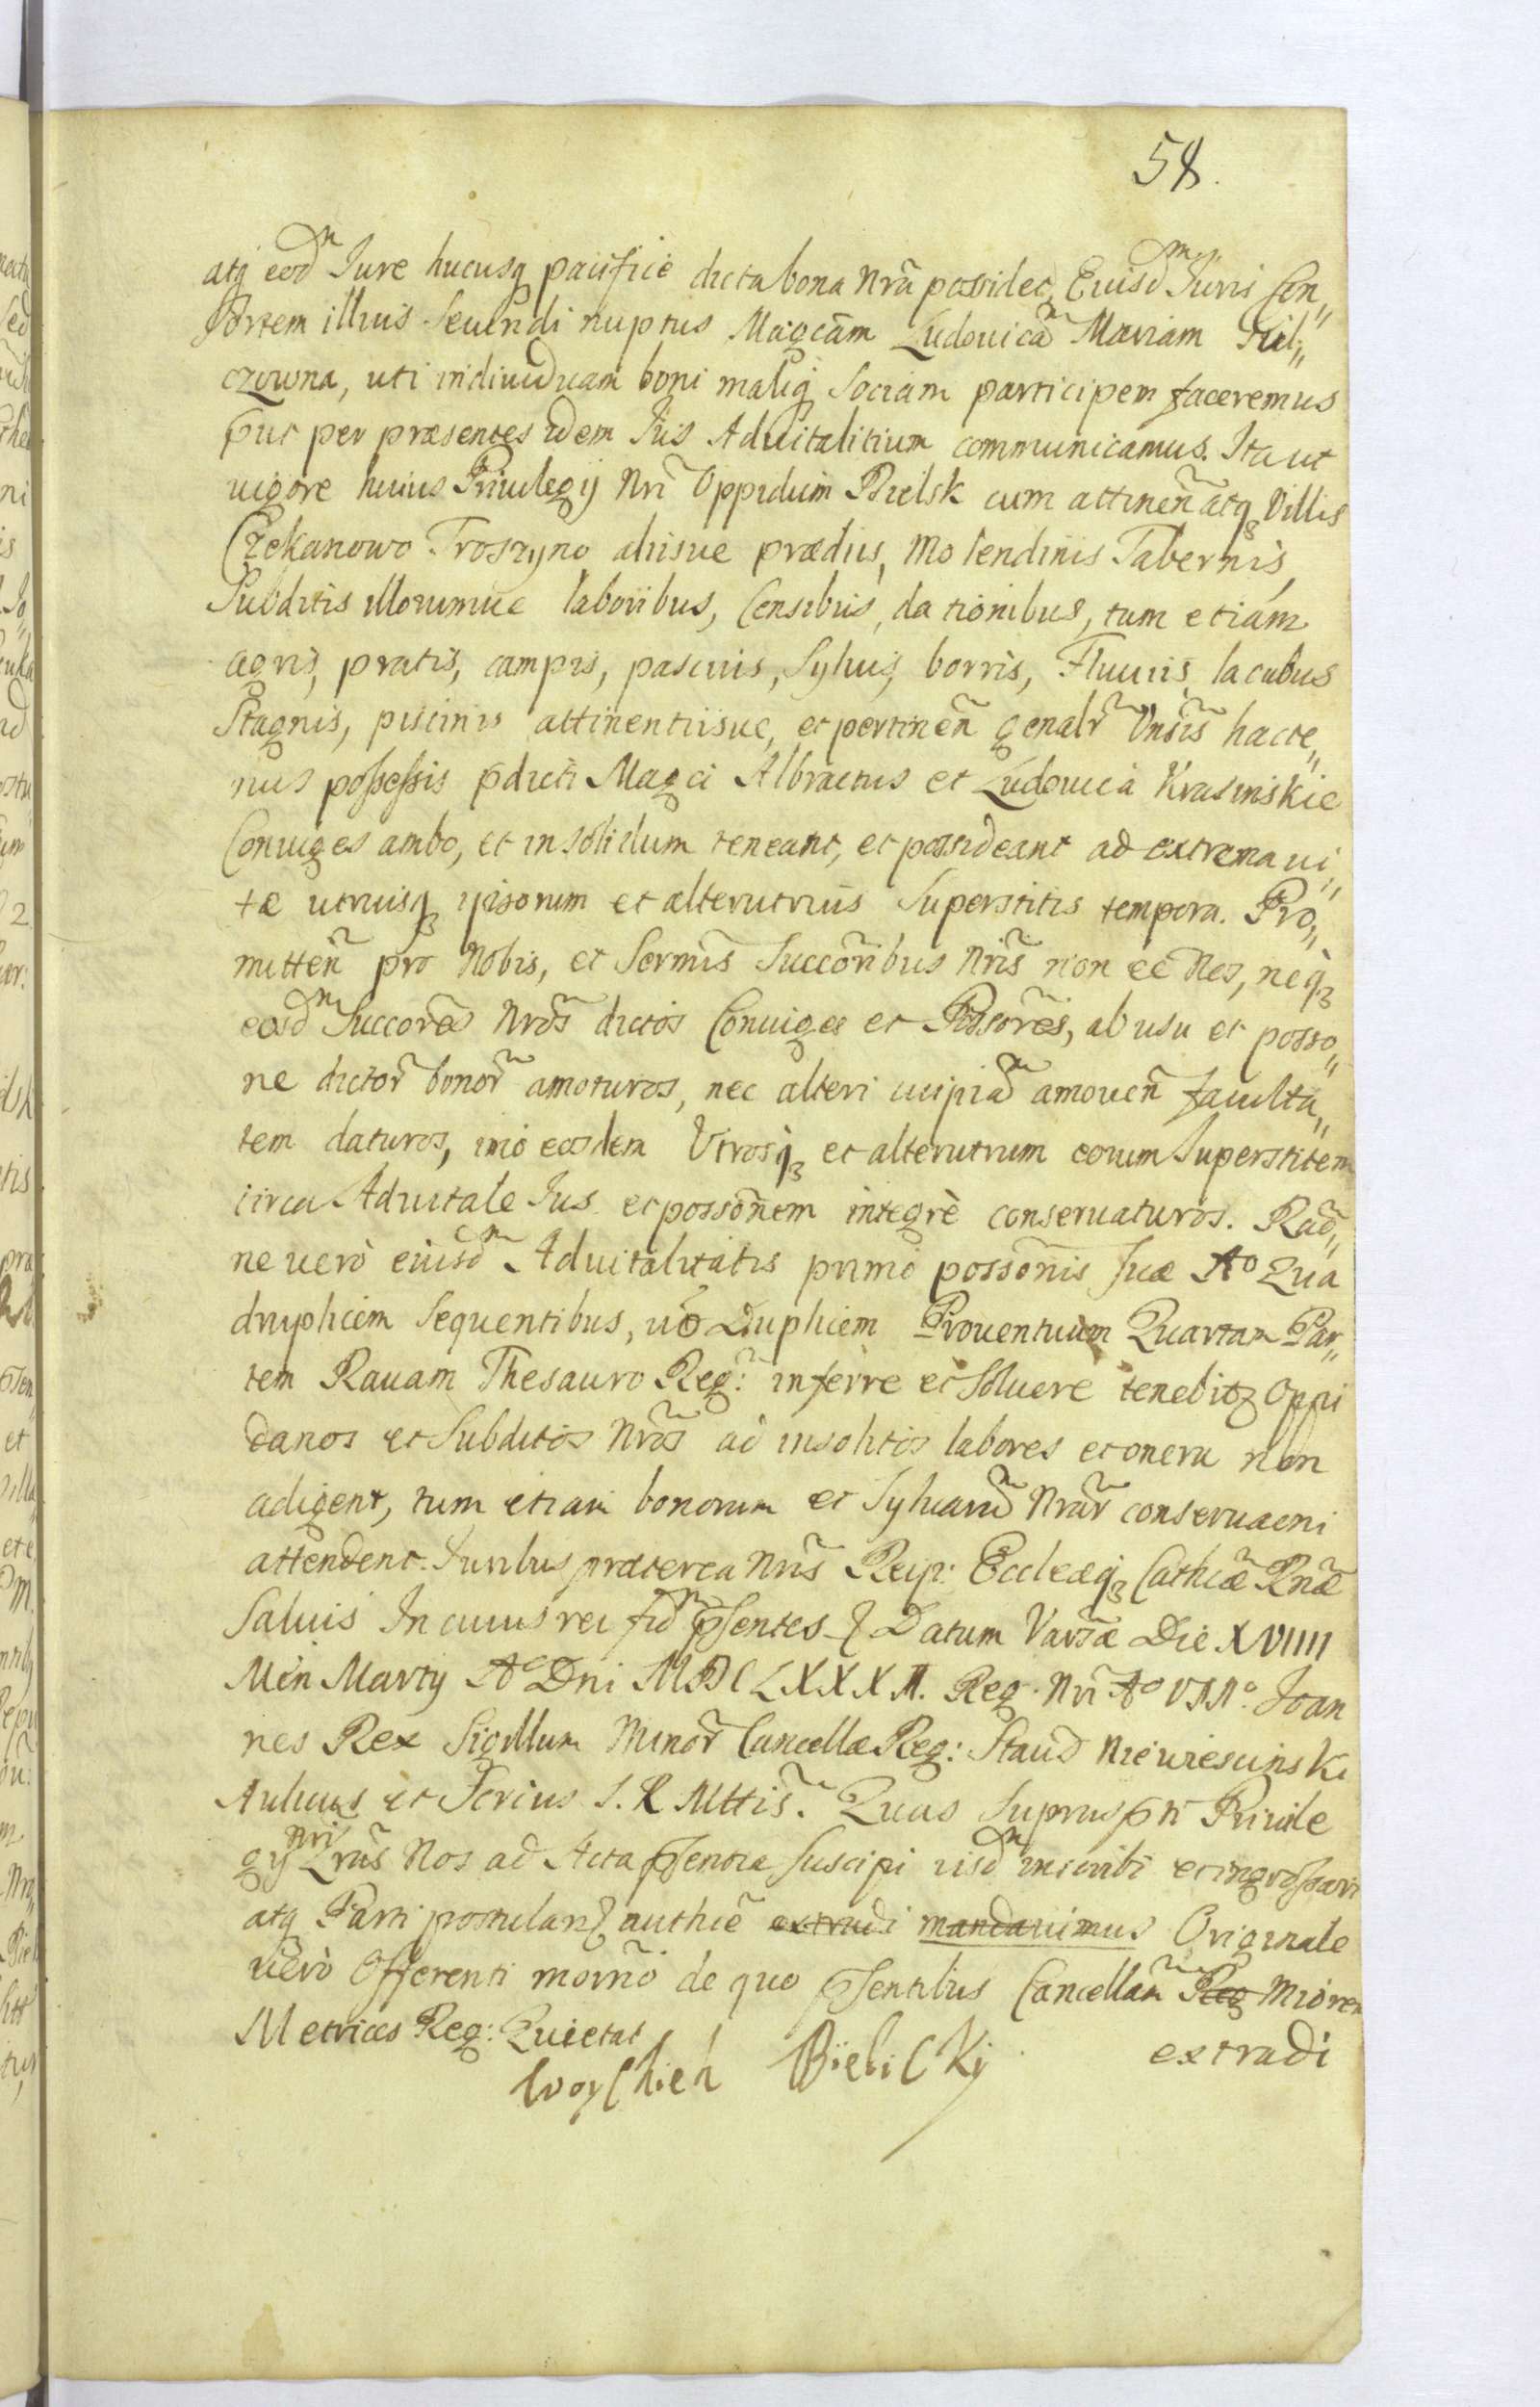 58.
atq eodm Jure hucusq pacifice dicta bona Nrã possidet, Euisdm Juris Con„
sortem illius Secundi nuptus Magcãm Ludouicam Mariam
czowna, uti indiuiduam boni maliq Sociam participem faceremus
put per præsentes idem Jus Aduitalitium communicamus. Ita ut
uigore huius Priuilegij Nri Oppidum Bielsk cum attineñ atq Villis
Czekanowo Troszyno aliisue prædiis, Molendinis Tabernis,
Subditis illorumue laboribus, Censibus, dationibus, tum etiam
agris, pratis, campis, pascuis, Syluis, borris, Fluuiis lacubus
Stagnis, piscinis attinentiisue, et pertineñ genalr Vnsis hacte„
nus possessis pdicti Magci Albractus et Ludouica Krasinskie
Coniuges ambo, et in solidum teneant, et possideant ad extrema ui„
tæ utriusq ipsorum et alterutrius Superstitis tempora. Pro„
mitteñ pro Nobis, et Sermis Succoribus Nris non ee Nos, neq
eosdm Succores Nros dictos Coniuges et Possores, ab usu et posso„
ne dictor bonor amoturos, nec alteri cuipiam amoueñ faculta„
tem daturos, imo eosdem Vtrosq et alterutrum eorum Superstitem
circa Aduitale Jus et possonem integrè conseruaturos. Raõ„
ne uerò eiusdm Aduitalitatis primo possonis suæ Ao Qua
druplicem Sequentibus, uo Duplicem Prouentuum Quartam Par„
tem Rauam Thesauro Reg: inferre et Soluere tenebitq Oppi
danos et Subditos Nros ad insolitos labores et onera non
adigent, tum etiam bonorum et Syluarum Nrar conseruaeni
attendent. Juribus præterea Nris Reip: Eccleæq Cathcæ Rnæ
Saluis In cuius rei fidm psentes & Datum Varsæ Die XVIIII
Men Martij Ao Dni MDCLXXXII. Reg. Nri Ao VIIIo. Joan
nes Rex Sigillum Minor Cancellæ Reg: Staud Niewiescinski
Aulicus et Scrius S. R Mttis. Quas Suprius pti Priuile
gij Nri Lras Nos ad Acta psentia Suscipi iisdm inscribi et ingrossari
atq Parti postulan authice extradi mandauimus Originale
uero Offerenti de quo psentibus Cancellam Reg Miorem
Metrices Reg: Quietat
extradi
woyChieh BieliCKy